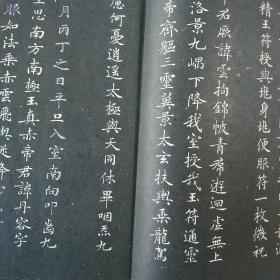 精玉符授與兆身兆便服符一枚微祝
君諱雲拘錦帔青帬遊迴虛無上
洛景九嵎下降我室授我玉符通靈
帝齊軀三靈翼景太玄扶輿乘龍駕
慮何憂逍遙太極與天同休畢咽炁九
月丙丁之日平旦入室南向叩齒九
思南方南極玉真赤帝君諱丹容字
服如法乘赤雲飛輿從絳